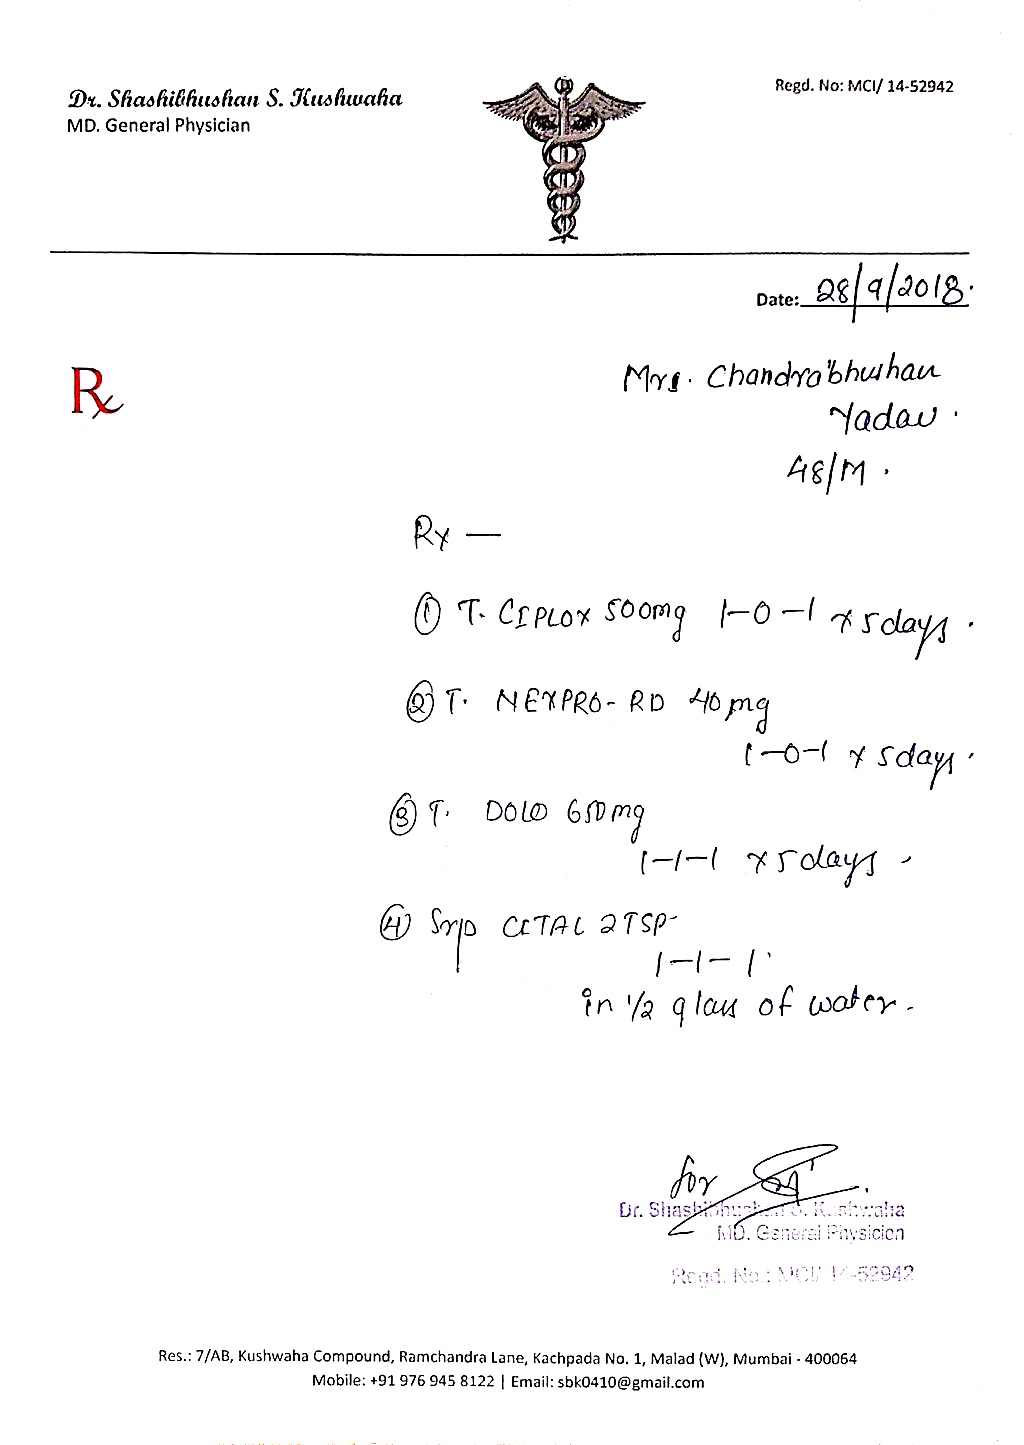 Dr. Shashibhushan S. Kushwaha
MD. General Physician
Regd. No: MCI/ 14-52942
Date: 28/9/2018.
Rx
Mrs. Chandrabhushan
Yadav.
48/M.
Rx —
① T. CIPLOX 500mg 1-0-1 x 5days.
② T. NEXPRO-RD 40mg
1-0-1 x 5days.
③ T. DOLO 650mg
1-1-1 x 5days.
④ Syp CITAL 2TSP
1-1-1
in 1/2 glass of water.
for
Dr. Shashibhushan S. Kushwaha
MD. General Physician
Regd. No.: MCI/ 14-52942
Res.: 7/AB, Kushwaha Compound, Ramchandra Lane, Kachpada No. 1, Malad (W), Mumbai - 400064
Mobile: +91 976 945 8122 | Email: sbk0410@gmail.com